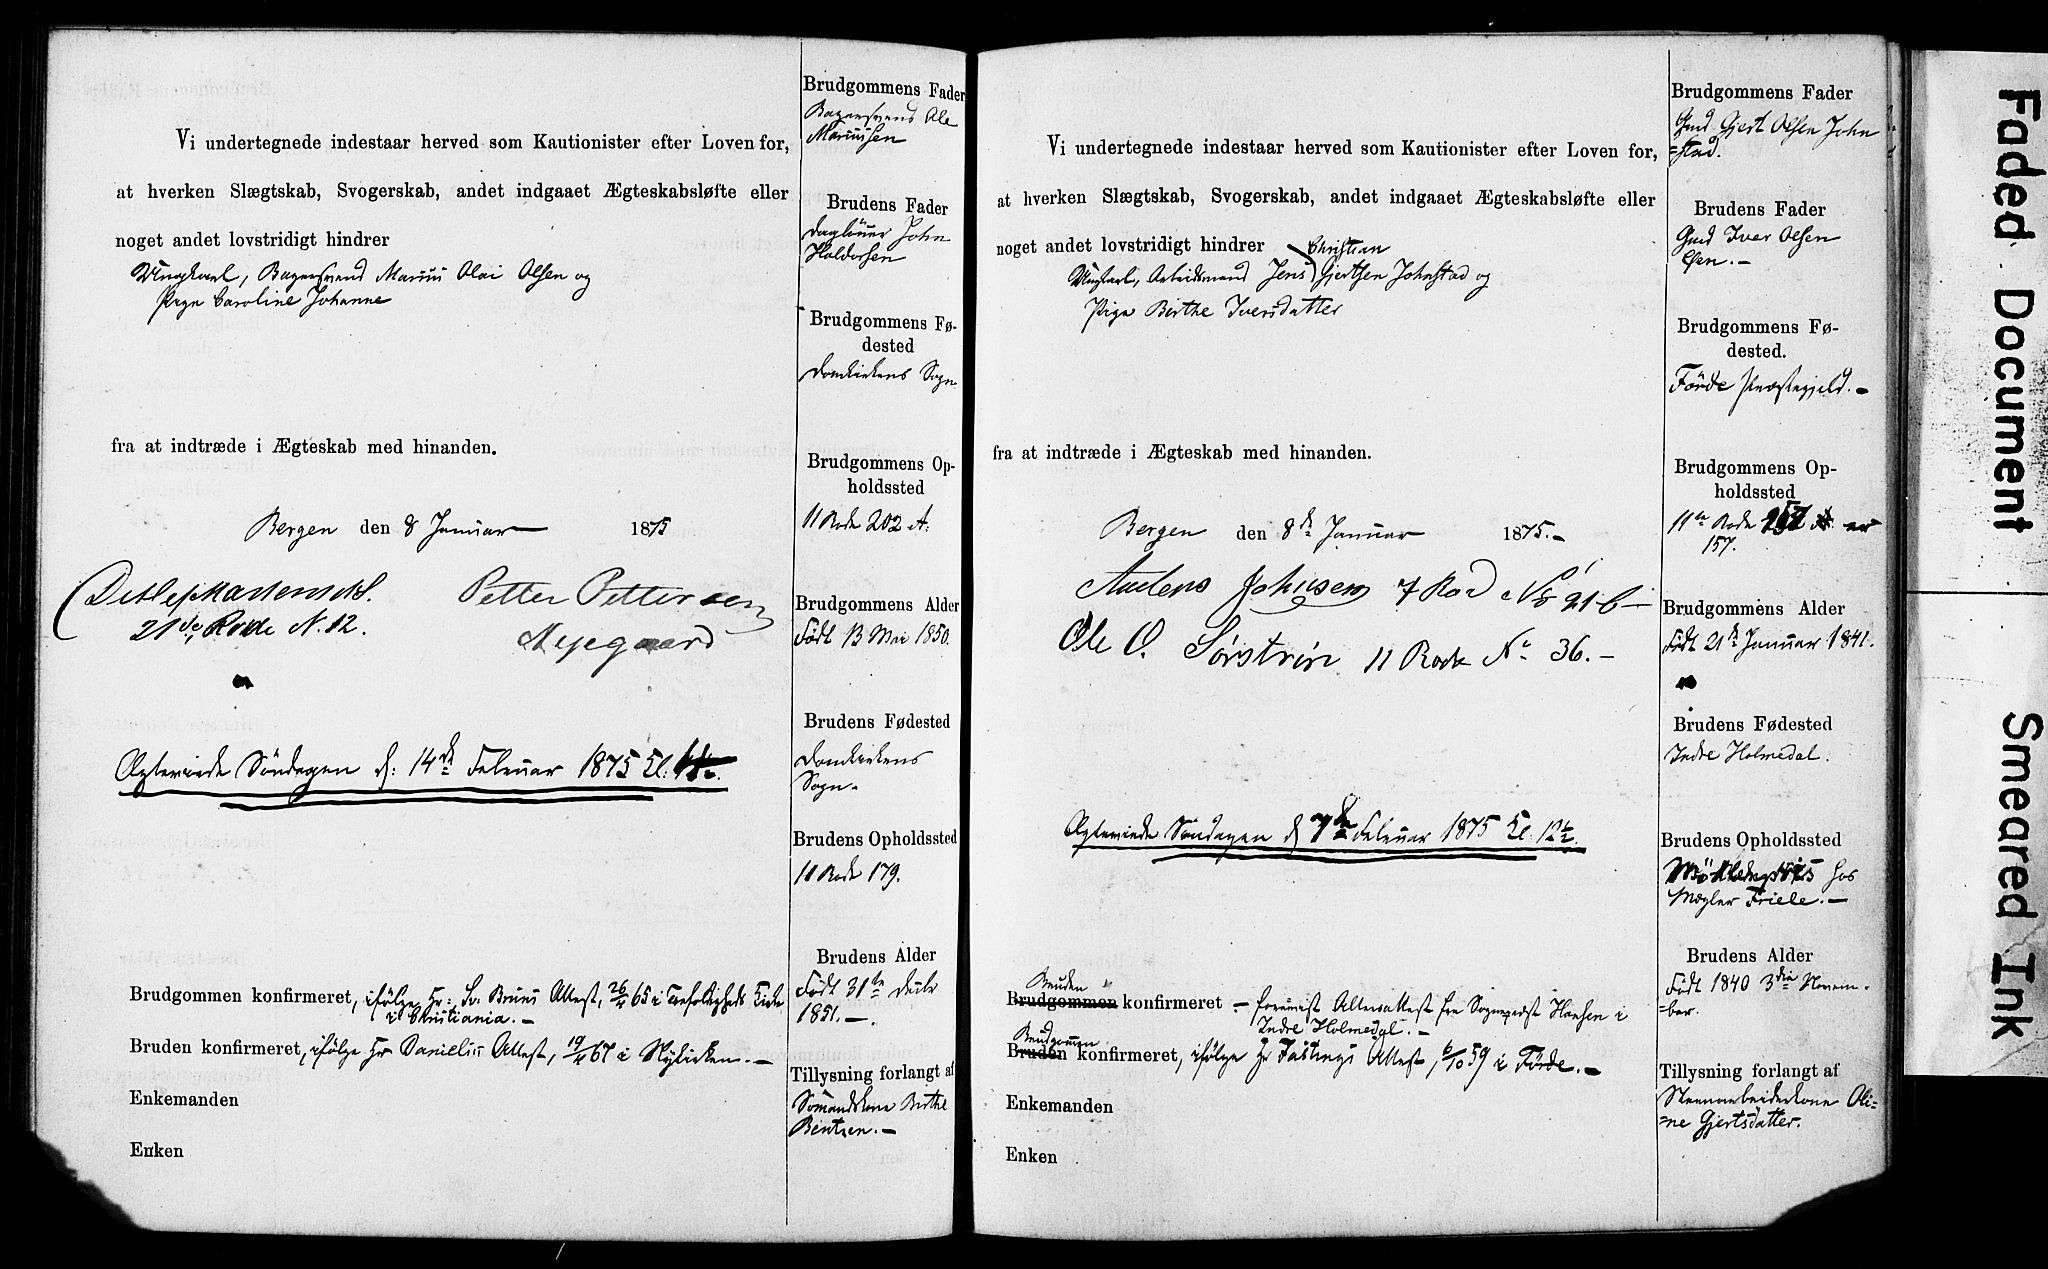 Vi undertegnede indestaar herved som Kautionister efter Loven for,
at hverken Slægtskab, Svogerskab, andet indgaaet Ægteskabsløfte eller
noget andet lovstridigt hindrer
Ungkarl, Bagersvend Marius Olai Olsen og
Pige Caroline Johanne
fra at indtræde i Ægteskab med hinanden.
Bergen den 8 Januar 1875
Petter Pettersen
21de Rode N. 12. Myegaard
Ægteviede Söndagen d: 14de Februar 1875 Kl.
Brudgommen konfirmeret, ifölge Hr: Sv. Bruns Attest, 26/4 65 i Trefoldigheds Kirke
i Christiania. –
Bruden konfirmeret, ifölge Hr Danielsens Attest, 67 i Nykirken. –
Enkemanden
Enken
Brudgommens Fader
Bagersvend Ole
Mariussen
Brudens Fader
Daglönner John
Haldorsen
Brudgommens Fø-
dested
Domkirkens Sogn
Brudgommens Op-
holdssted
11 Rode 202 A:
Brudgommens Alder
Født 13 Mai 1850.
Brudens Fødested
Domkirkens
Sogn.
Brudens Opholdssted
11 Rode 179.
Brudens Alder
Født 31te Decbr
1851. –
Tillysning forlangt af
Sömandskone Birthe
Bentsen. –
Vi undertegnede indestaar herved som Kautionister efter Loven for,
at hverken Slægtskab, Svogerskab, andet indgaaet Ægteskabsløfte eller
noget andet lovstridigt hindrer
Christian
Ungkarl, Arbeidsmand Jens Gjertsen Johnstad og
Pige Birthe Iversdatter
fra at indtræde i Ægteskab med hinanden.
Bergen den 8de Januar 1875. –
Anders Johnsen 7 Rod No 91 b –
Ole O. Sørstrøn 11 Rode No 36. –
Ægteviede Söndagen d 7de Februar 1875 Kl. 12½.
Bruden
Brudgommen konfirmeret – forevist Altersattest fra Sognepræst Hansen i
Indre Holmedal. –
Brudgommen
Bruden konfirmeret, ifölge Hr Attest, 6/10 59 i Förde. –
Enkemanden
Enken
Brudgommens Fader
Gmd Gjert Olsen John
=stad.
Brudens Fader
Gmd Iver Olsen
Brudgommens Fø-
dested.
Förde Præstegjeld. –
Brudgommens Op-
holdssted
11te Rode
157.
Brudgommens Alder
Født 21de Januar 1841.
Brudens Fødested
Indre Holmedal.
Brudens Opholdssted
hos
Mægler Friele. –
Brudens Alder
Født 1840 3die Novem-
=ber.
Tillysning forlangt af
Steenarbeiderkone Oli=
=ne Gjertsdatter.
Faded Document
Smeared Ink